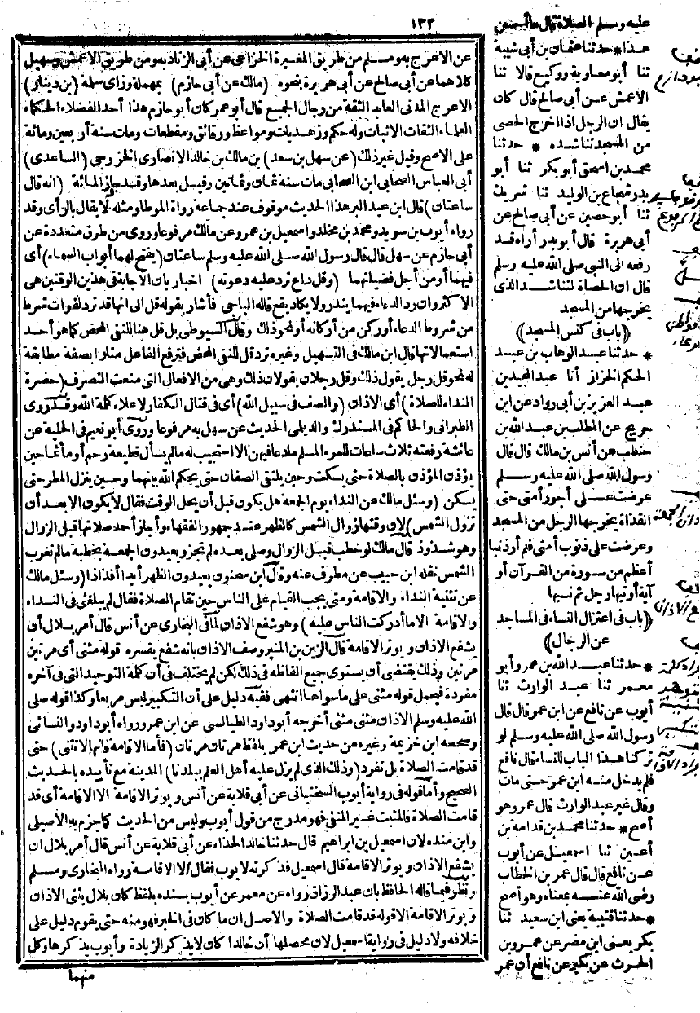 ١٣٢
عن الاعرج به ومسلم من طريق المغيرة الحزامي عن أبي الزناد به ومن طريق الاعمش وسهيل
كلاهما عن أبي صالح عن أبي هريرة بنحوه (مالك عن أبي حازم) بمهملة وزاي سلمة (بن دينار)
الاعرج المدني العابد الثقة من رجال الجميع قال أبو عمر كان أبو حازم هذا أحد الفضلاء الحكماء
العلماء الثقات الاثبات وله حكم وزهديات ومواعظ ورقائق ومقطعات ومات سنة أربعين ومائة
على الاصح وقيل غير ذلك (عن سهل بن سعد) بن مالك بن خالد الانصاري الخزرجي (الساعدي)
أبي العباس الصحابي ابن الصحابي مات سنة ثمان وثمانين وقيل بعدها وقد جاز المائة (انه قال
ساعتان) قال ابن عبد البر هذا الحديث موقوف عند جماعة رواة الموطا ومثله لا يقال بالرأي وقد
رواه أيوب بن سويد ومحمد بن مخلد واسمعيل بن عمرو عن مالك مرفوعا وروي من طرق متعددة عن
أبي حازم عن سهل قال قال رسول الله صلى الله عليه وسلم ساعتان (يفتح لهما أبواب السماء) أي
فيهما أو من أجل فضيلتهما (وقل داع ترد عليه دعوته) اخبار بان الاجابة في هذين الوقتين هي
الاكثر وان رد الدعاء فيهما يندر ولا يكاد يقع قاله الباجي فأشار بقوله قل الى انها قد ترد لفوات شرط
من شروط الدعاء أو ركن من أركانه أو نحو ذلك وقال السيوطي بل قل هنا للنفي المحض كما هو أحد
استعمالاتها قال ابن مالك في التسهيل وغيره ترد قل للنفي المحض فترفع الفاعل متلوا بصفة مطابقة
له نحو قل رجل يقول ذلك وقل رجلان يقولان ذلك وهي من الافعال التي منعت التصرف (حضرة
النداء للصلاة) أي الاذان (والصف في سبيل الله) أي في قتال الكفار لاعلاء كلمة الله وقد روى
الطبراني والحاكم في المستدرك والديلمي الحديث عن سهل به مرفوعا وروى أبو نعيم في الحلية عن
عائشة رفعته ثلاث ساعات للمرء المسلم ما دعا فيهن الا استجيب له ما لم يسأل قطيعة رحم أو مأثما حين
يؤذن المؤذن بالصلاة حتى يسكت وحين يلتقي الصفان حتى يحكم الله بينهما وحين ينزل المطر حتى
يسكن (وسئل مالك عن النداء يوم الجمعة هل يكون قبل أن يحل الوقت فقال لا يكون الا بعد أن
تزول الشمس) لان وقتها زوال الشمس كالظهر عند جمهور الفقهاء وأجاز أحمد صلاتها قبل الزوال
وهو شذوذ قال مالك لو خطب قبل الزوال وصلى بعده لم تجز ويعيدون الجمعة بخطبة ما لم تغرب
الشمس نقله ابن حبيب عن مطرف عنه وقال ابن سحنون يعيدون الظهر أبدا أفذاذا (وسئل مالك
عن تثنية النداء والاقامة ومتى يجب القيام على الناس حين تقام الصلاة فقال لم يبلغني في النداء
والاقامة الا ما أدركت الناس عليه) وهو شفع الاذان لما في البخاري عن أنس قال أمر بلال أن
يشفع الاذان ويوتر الاقامة قال الزين بن المنير وصف الاذان بانه شفع يفسره قوله مثنى أي مرتين
مرتين وذلك يقتضي أن يستوي جميع ألفاظه في ذلك لكن لم يختلف في أن كلمة التوحيد التي في آخره
مفردة فيحمل قوله مثنى على ما سواها انتهى ففيه دليل على أن التكبير ليس مربعا وكذا قوله صلى
الله عليه وسلم الاذان مثنى مثنى أخرجه أبو داود الطيالسي عن ابن عمر ورواه أبو داود والنسائي
وصححه ابن خزيمة وغيره من حديث ابن عمر بلفظ مرتان مرتان (فأما الاقامة فانها لا تثنى) حتى
قد قامت الصلاة بل تفرد (وذلك الذي لم يزل عليه أهل العلم ببلدنا) المدينة مع تأييده بالحديث
الصحيح وأما قوله في رواية أيوب السختياني عن أبي قلابة عن أنس ويوتر الاقامة الا الاقامة أي قد
قامت الصلاة فالمثبت غير المنفي فهو مدرج من قول أيوب وليس من الحديث كما جزم به الاصيلي
وابن منده لان اسمعيل بن ابراهيم قال حدثنا خالد الحذاء عن أبي قلابة عن أنس قال أمر بلال ان
يشفع الاذان ويوتر الاقامة قال اسمعيل فذكرته لايوب فقال الا الاقامة رواه البخاري ومسلم
ونظر فيما قاله الحافظ بان عبد الرزاق رواه عن معمر عن أيوب بسنده بلفظ كان بلال يثني الاذان
ويوتر الاقامة الا قوله قد قامت الصلاة والاصل ان ما كان في الخبر فهو منه حتى يقوم دليل على
خلافه ولا دليل في رواية اسمعيل لان محصلها أن خالدا كان لا يذكر الزيادة وأيوب يذكرها وكل
منهما
عليه وسلم الصلاة قال
هذا * حدثنا عثمان بن أبي شيبة
ثنا أبو معاوية ووكيع قالا ثنا
الاعمش عن أبي صالح قال كان
يقال ان الرجل اذا اخرج الحصى
من المسجد تناشده * حدثنا
محمد بن اسحق أبو بكر ثنا أبو
بدر شجاع بن الوليد ثنا شريك
ثنا أبو حصين عن أبي صالح عن
أبي هريرة قال أبو بدر أراه قد
رفعه الى النبي صلى الله عليه وسلم
قال ان الحصاة لتناشد الذي
يخرجها من المسجد
(باب في كنس المسجد)
* حدثنا عبد الوهاب بن عبد
الحكم الخزاز أنا عبد المجيد بن
عبد العزيز بن أبي رواد عن ابن
جريج عن المطلب بن عبد الله بن
حنطب عن أنس بن مالك قال قال
رسول الله صلى الله عليه وسلم
عرضت على أجور أمتي حتى
القذاة يخرجها الرجل من المسجد
وعرضت على ذنوب أمتي فلم أر ذنبا
أعظم من سورة من القرآن أو
آية أوتيها رجل ثم نسيها
(باب في اعتزال النساء في المساجد
عن الرجال)
* حدثنا عبد الله بن عمرو أبو
معمر ثنا عبد الوارث ثنا
أيوب عن نافع عن ابن عمر قال قال
رسول الله صلى الله عليه وسلم لو
تركنا هذا الباب للنساء قال نافع
فلم يدخل منه ابن عمر حتى مات
وقال غير عبد الوارث قال عمر وهو
أصح * حدثنا محمد بن قدامة بن
أعين ثنا اسمعيل عن أيوب
عن نافع قال قال عمر بن الخطاب
رضي الله عنه بمعناه وهو أصح
* حدثنا قتيبة يعني ابن سعيد ثنا
بكر يعني ابن مضر عن عمرو بن
الحرث عن بكير عن نافع أن عمر